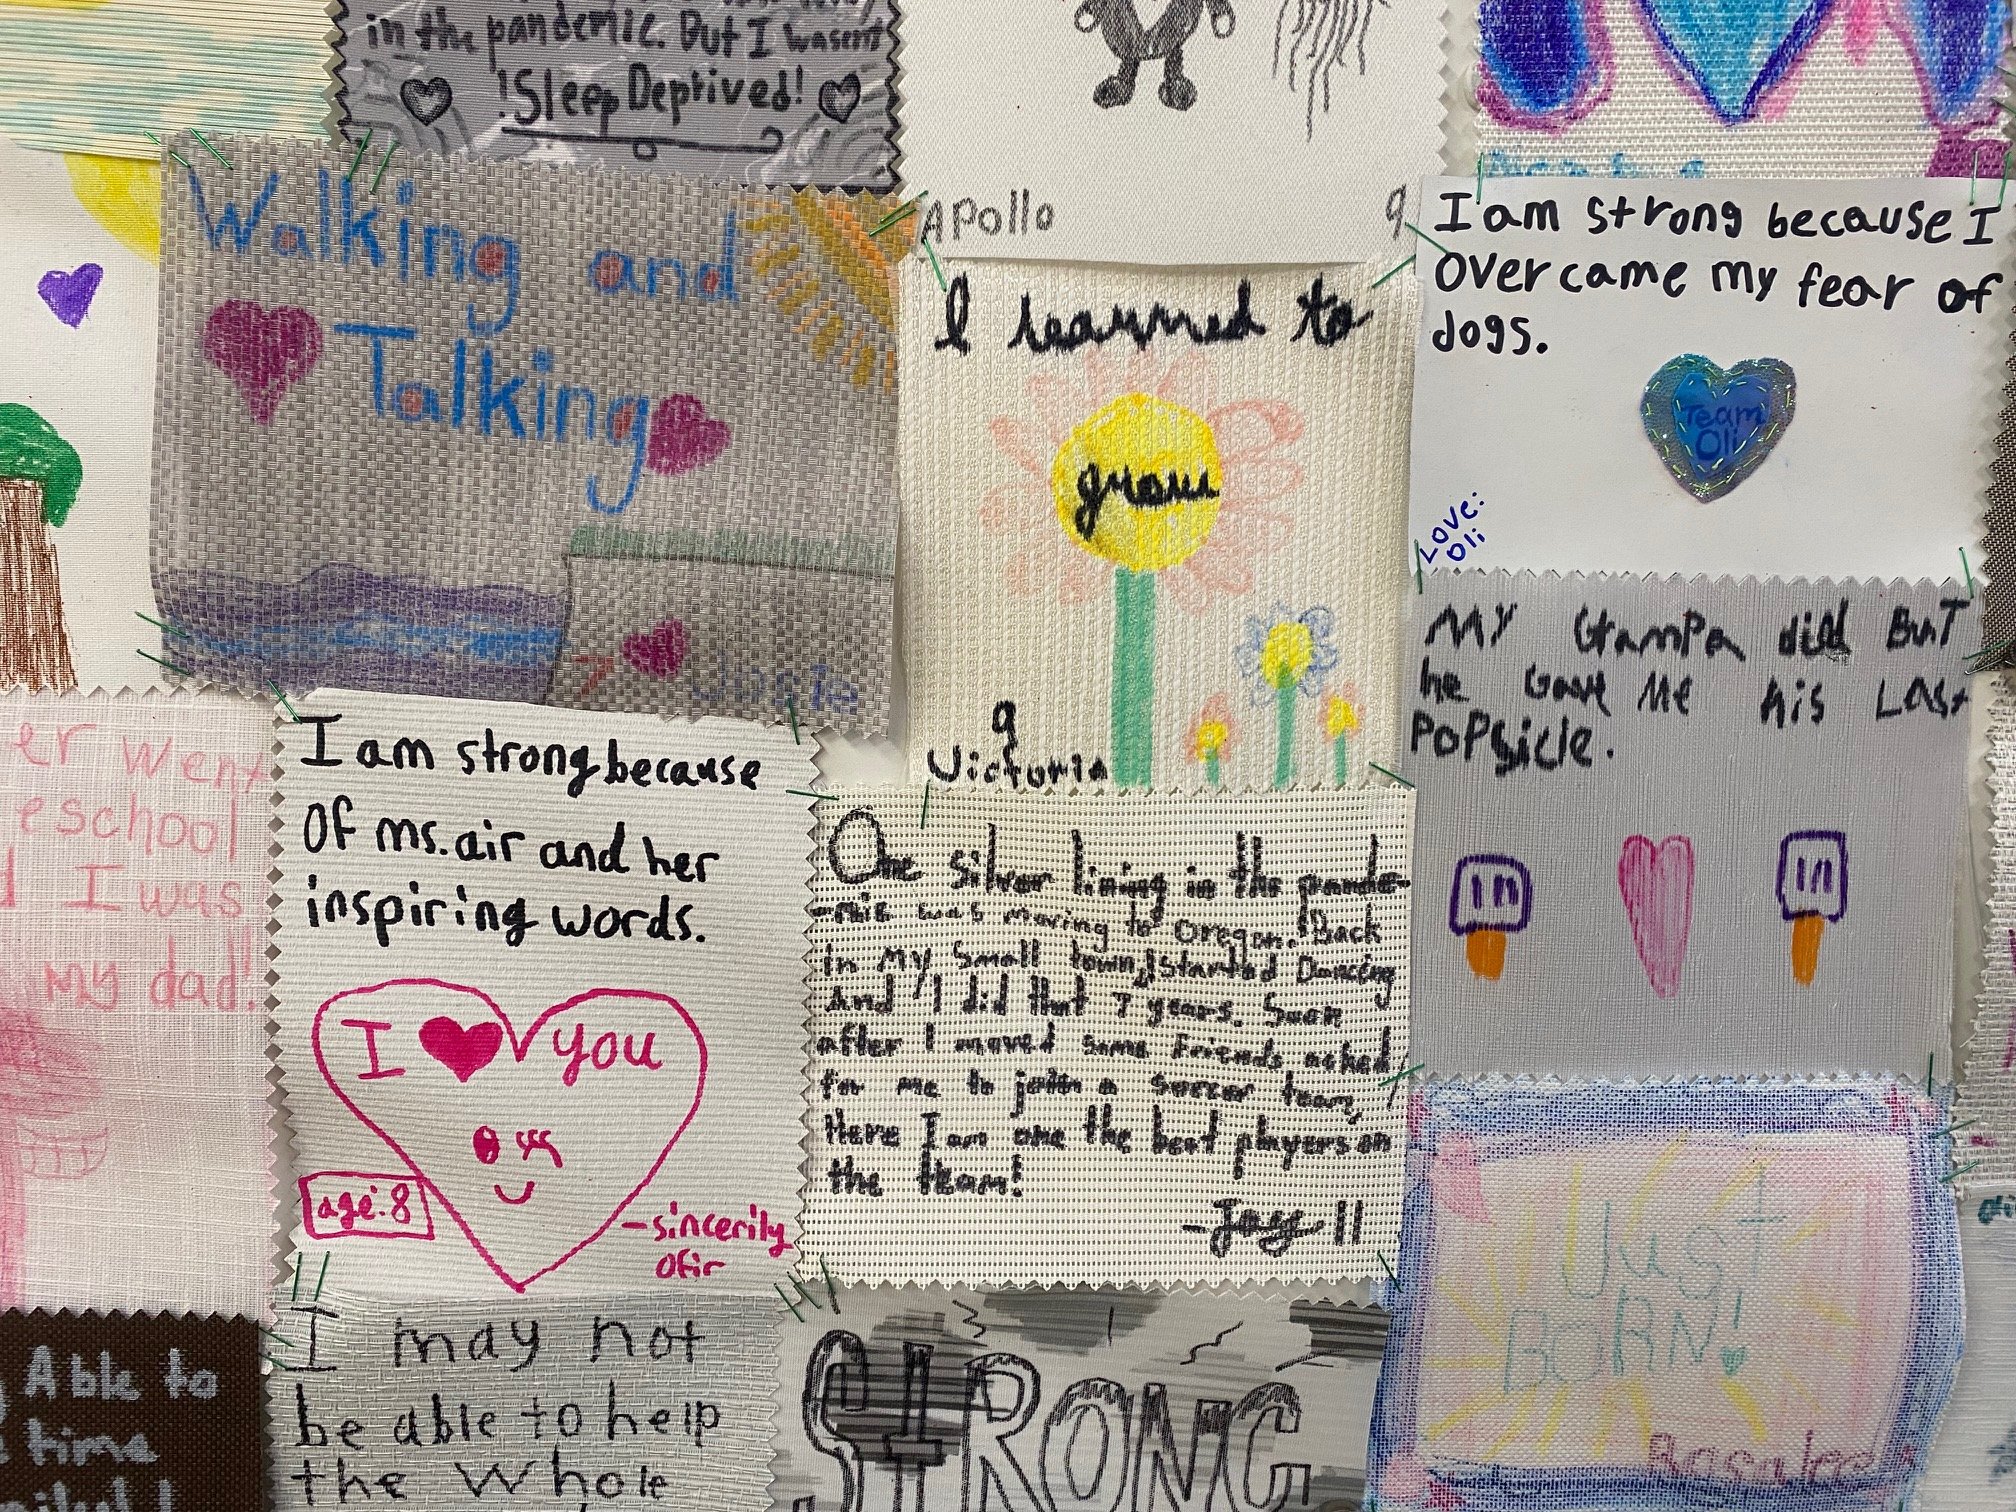 in the pandemic. But I wasent
!Sleep Deprived!
Apollo 9
Walking and
Talking
7 Josie
I learned to
grow
9
Victoria
I am strong because I
overcame my fear of
dogs.
Team
Oli
Love:
Oli
MY Grampa did BuT
he Gave Me his LAst
PoPsicle.
er went
eschool
d I was
my dad!
I am strong because
Of ms. air and her
inspiring words.
I ♥ you
age: 8
-sincerily
Ofir
One silver lining in the pande-
-mic was moving to Oregon. Back
in my small town, I started Dancing
And I did that 7 years. Soon
after I moved some Friends asked
for me to join a soccer team,
Here I am one the best players on
the team!
11
Just
BORN!
Able to
time
I may not
be able to help
the whole
STRONG